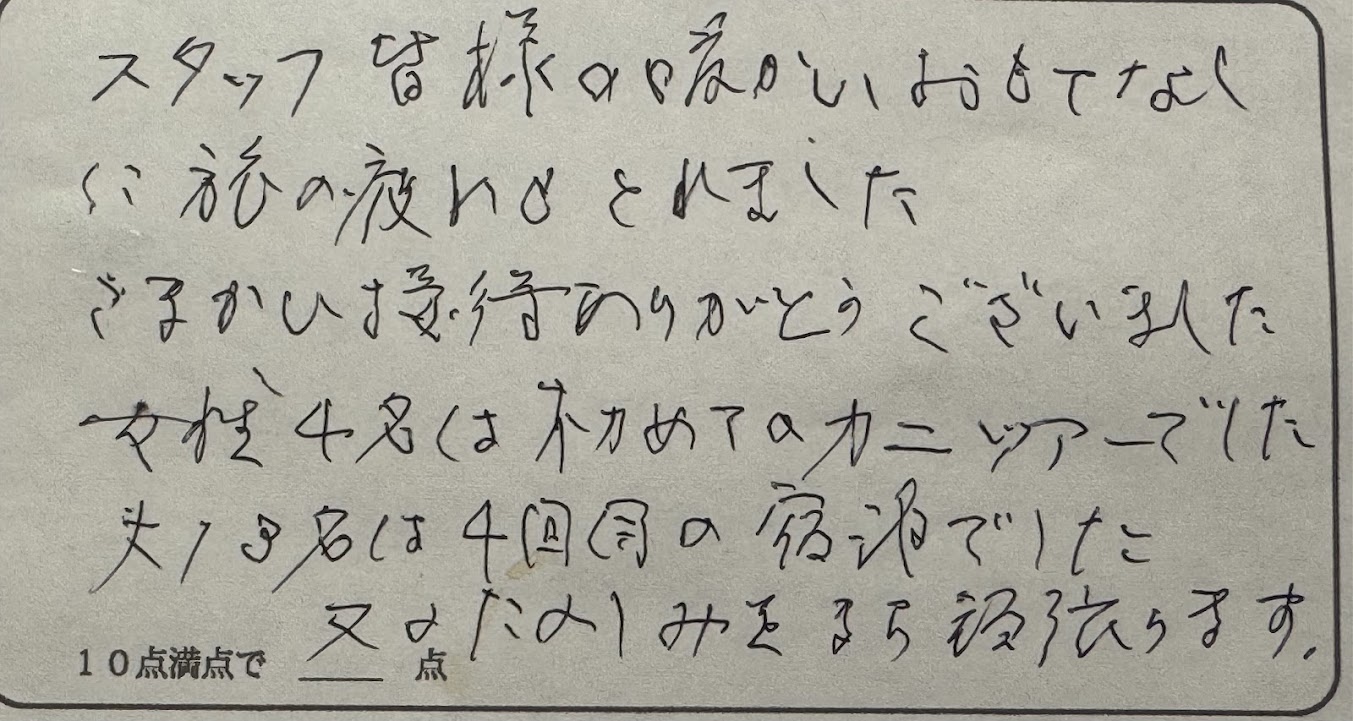 スタッフ皆様の暖かいおもてなし
に旅の疲れもとれました
きまかい接待ありがとうございました
女性4名は初めてのカニツアーでした
3名は4回目の宿泊でした
又のたのしみをまち頑張ります。
10点満点で 点